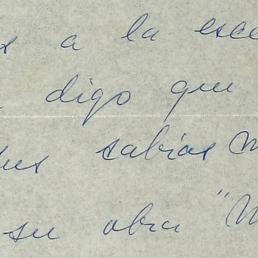 s a la esce
digo que
sus sabias m
su obra "M